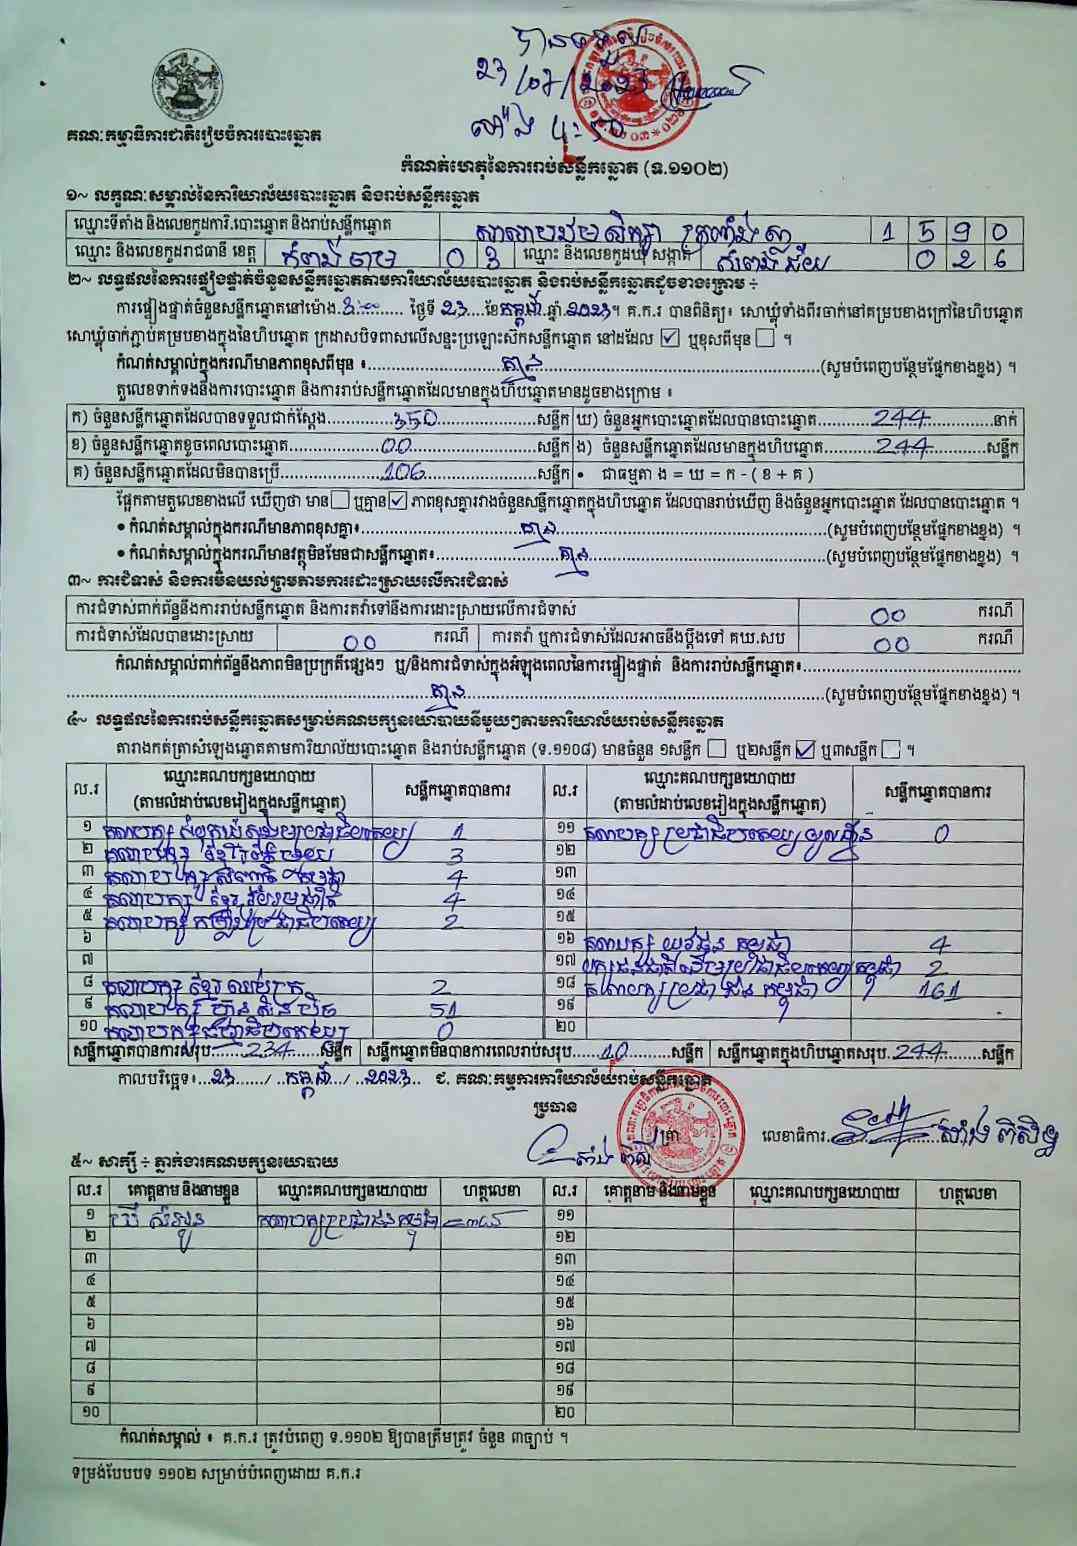 បានទទួល
23/07/2023
ម៉ោង 4:50
គណៈកម្មាធិការជាតិរៀបចំការបោះឆ្នោត
កំណត់ហេតុនៃការរាប់សន្លឹកឆ្នោត (ទ.១១០២)
១~ លក្ខណៈសម្គាល់នៃការិយាល័យបោះឆ្នោត និងរាប់សន្លឹកឆ្នោត
ឈ្មោះទីតាំង និងលេខកូដការិ.បោះឆ្នោត និងរាប់សន្លឹកឆ្នោត សាលាបឋមសិក្សា 1 5 9 0
ឈ្មោះ និងលេខកូដរាជធានី ខេត្ត កំពង់ចាម 0 3 ឈ្មោះ និងលេខកូដឃុំ សង្កាត់ 0 2 6
២~ លទ្ធផលនៃការផ្ទៀងផ្ទាត់ចំនួនសន្លឹកឆ្នោតតាមការិយាល័យបោះឆ្នោត និងរាប់សន្លឹកឆ្នោតដូចខាងក្រោម ÷
ការផ្ទៀងផ្ទាត់ចំនួនសន្លឹកឆ្នោតនៅម៉ោង 3:00 ថ្ងៃទី 23 ខែ កក្កដា ឆ្នាំ 2023។ គ.ក.រ បានពិនិត្យ៖ សោឃ្លុំទាំងពីរចាក់នៅគម្របខាងក្រៅនៃហិបឆ្នោត
សោឃ្លុំចាក់ភ្ជាប់គម្របខាងក្នុងនៃហិបឆ្នោត ក្រដាសបិទពាសលើសន្ទះប្រឡោះស៊កសន្លឹកឆ្នោត នៅដដែល ☑ ឬខុសពីមុន ☐ ។
កំណត់សម្គាល់ក្នុងករណីមានភាពខុសពីមុន ៖ គ្មាន (សូមបំពេញបន្ថែមផ្នែកខាងខ្នង) ។
តួលេខទាក់ទងនឹងការបោះឆ្នោត និងការរាប់សន្លឹកឆ្នោតដែលមានក្នុងហិបឆ្នោតមានដូចខាងក្រោម ៖
ក) ចំនួនសន្លឹកឆ្នោតដែលបានទទួលជាក់ស្តែង 350 សន្លឹក ឃ) ចំនួនអ្នកបោះឆ្នោតដែលបានបោះឆ្នោត 244 នាក់
ខ) ចំនួនសន្លឹកឆ្នោតខូចពេលបោះឆ្នោត 00 សន្លឹក ង) ចំនួនសន្លឹកឆ្នោតដែលមានក្នុងហិបឆ្នោត 244 សន្លឹក
គ) ចំនួនសន្លឹកឆ្នោតដែលមិនបានប្រើ 106 សន្លឹក • ជាធម្មតា ង = ឃ = ក - ( ខ + គ )
ផ្អែកតាមតួលេខខាងលើ ឃើញថា មាន ☐ ឬគ្មាន ☑ ភាពខុសគ្នារវាងចំនួនសន្លឹកឆ្នោតក្នុងហិបឆ្នោត ដែលបានរាប់ឃើញ និងចំនួនអ្នកបោះឆ្នោត ដែលបានបោះឆ្នោត ។
• កំណត់សម្គាល់ក្នុងករណីមានភាពខុសគ្នា៖ គ្មាន (សូមបំពេញបន្ថែមផ្នែកខាងខ្នង) ។
• កំណត់សម្គាល់ក្នុងករណីមានវត្ថុមិនមែនជាសន្លឹកឆ្នោត៖ គ្មាន (សូមបំពេញបន្ថែមផ្នែកខាងខ្នង) ។
៣~ ការជំទាស់ និងការមិនយល់ព្រមតាមការដោះស្រាយលើការជំទាស់
ការជំទាស់ពាក់ព័ន្ធនឹងការរាប់សន្លឹកឆ្នោត និងការតវ៉ាទៅនឹងការដោះស្រាយលើការជំទាស់ 00 ករណី
ការជំទាស់ដែលបានដោះស្រាយ 00 ករណី ការតវ៉ា ឬការជំទាស់ដែលអាចនឹងប្តឹងទៅ គឃ.សប 00 ករណី
កំណត់សម្គាល់ពាក់ព័ន្ធនឹងភាពមិនប្រក្រតីផ្សេងៗ ឬ/និងការជំទាស់ក្នុងអំឡុងពេលនៃការផ្ទៀងផ្ទាត់ និងការរាប់សន្លឹកឆ្នោត៖
គ្មាន (សូមបំពេញបន្ថែមផ្នែកខាងខ្នង) ។
៤~ លទ្ធផលនៃការរាប់សន្លឹកឆ្នោតសម្រាប់គណបក្សនយោបាយនីមួយៗតាមការិយាល័យរាប់សន្លឹកឆ្នោត
តារាងកត់ត្រាសំឡេងឆ្នោតតាមការិយាល័យបោះឆ្នោត និងរាប់សន្លឹកឆ្នោត (ទ.១១០៨) មានចំនួន ១សន្លឹក ☐ ឬ២សន្លឹក ☑ ឬ៣សន្លឹក ☐ ។
ល.រ ឈ្មោះគណបក្សនយោបាយ (តាមលំដាប់លេខរៀងក្នុងសន្លឹកឆ្នោត) សន្លឹកឆ្នោតបានការ ល.រ ឈ្មោះគណបក្សនយោបាយ (តាមលំដាប់លេខរៀងក្នុងសន្លឹកឆ្នោត) សន្លឹកឆ្នោតបានការ
១ គណបក្ស សំបុកឃ្មុំសង្គមប្រជាធិបតេយ្យ 1 ១១ គណបក្ស ប្រជាធិបតេយ្យមូលដ្ឋាន 0
២ គណបក្ស ខ្មែរអភិវឌ្ឍ 3 ១២
៣ គណបក្ស សញ្ជាតិកម្ពុជា 4 ១៣
៤ គណបក្ស ខ្មែររួបរួមជាតិ 4 ១៤
៥ គណបក្ស កម្លាំងប្រជាធិបតេយ្យ 2 ១៥
៦ ១៦ គណបក្ស យុវជនកម្ពុជា 4
៧ ១៧ បក្សជនជាតិដើមប្រជាធិបតេយ្យកម្ពុជា 2
៨ គណបក្ស ខ្មែរឈប់ក្រ 2 ១៨ គណបក្សប្រជាជនកម្ពុជា 161
៩ គណបក្ស ហ្វ៊ុនស៊ិនប៉ិច 51 ១៩
១០ គណបក្សធម្មាធិបតេយ្យ 0 ២០
សន្លឹកឆ្នោតបានការសរុប 234 សន្លឹក សន្លឹកឆ្នោតមិនបានការពេលរាប់សរុប 10 សន្លឹក សន្លឹកឆ្នោតក្នុងហិបឆ្នោតសរុប 244 សន្លឹក
កាលបរិច្ឆេទ៖ 23 / កក្កដា / 2023 ជ. គណៈកម្មការការិយាល័យរាប់សន្លឹកឆ្នោត
ប្រធាន
ត្រា លេខាធិការ សាំង ពិសិទ្ធ
៥~ សាក្សី ÷ ភ្នាក់ងារគណបក្សនយោបាយ
ល.រ គោត្តនាម និងនាមខ្លួន ឈ្មោះគណបក្សនយោបាយ ហត្ថលេខា ល.រ គោត្តនាម និងនាមខ្លួន ឈ្មោះគណបក្សនយោបាយ ហត្ថលេខា
១ គណបក្សប្រជាជនកម្ពុជា ១១
២ ១២
៣ ១៣
៤ ១៤
៥ ១៥
៦ ១៦
៧ ១៧
៨ ១៨
៩ ១៩
១០ ២០
កំណត់សម្គាល់ ៖ គ.ក.រ ត្រូវបំពេញ ទ.១១០២ ឱ្យបានត្រឹមត្រូវ ចំនួន ៣ច្បាប់ ។
ទម្រង់បែបបទ ១១០២ សម្រាប់បំពេញដោយ គ.ក.រ